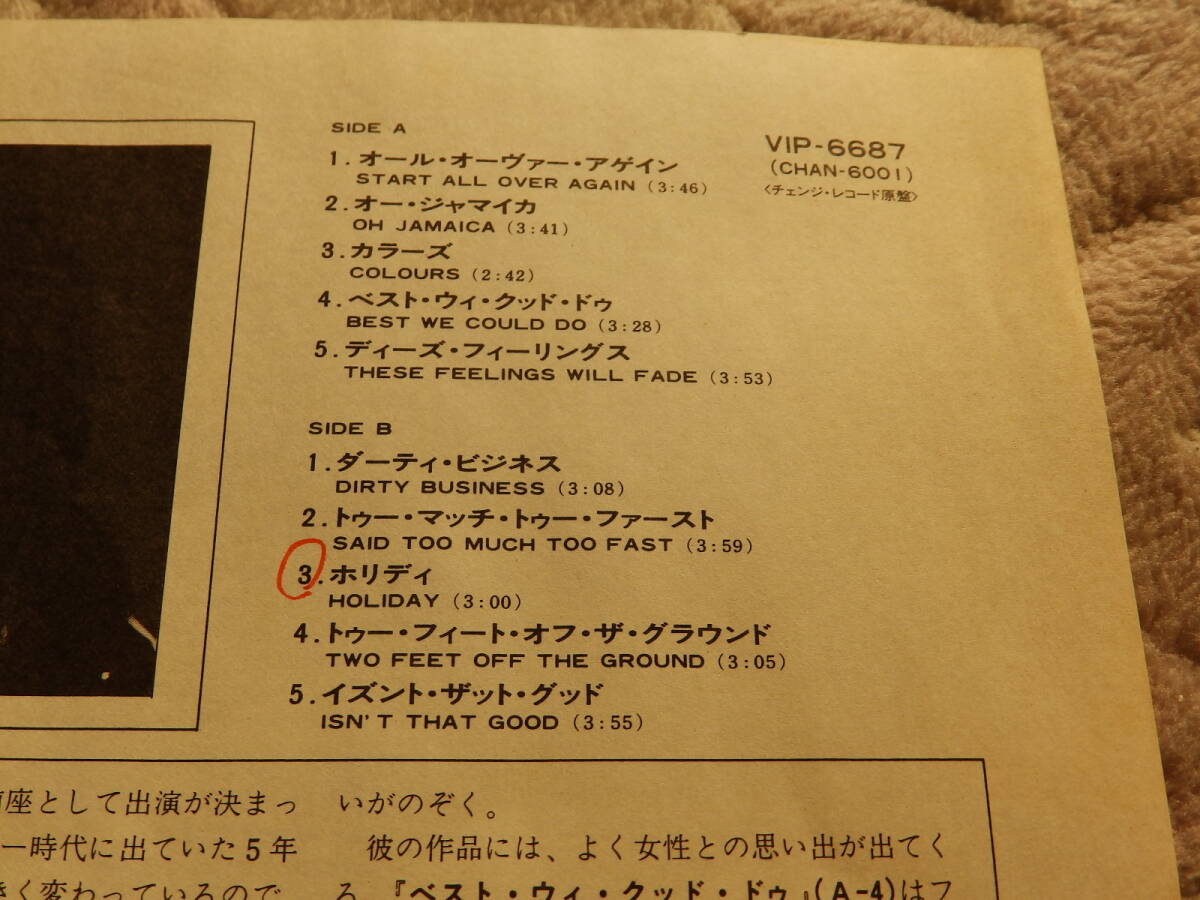 SIDE A
1. オール・オーヴァー・アゲイン
START ALL OVER AGAIN (3:46)
2. オー・ジャマイカ
OH JAMAICA (3:41)
3. カラーズ
COLOURS (2:42)
4. ベスト・ウィ・クッド・ドゥ
BEST WE COULD DO (3:28)
5. ディーズ・フィーリングス
THESE FEELINGS WILL FADE (3:53)
VIP-6687
(CHAN-6001)
〈チェンジ・レコード原盤〉
SIDE B
1. ダーティ・ビジネス
DIRTY BUSINESS (3:08)
2. トゥー・マッチ・トゥー・ファースト
SAID TOO MUCH TOO FAST (3:59)
3. ホリディ
HOLIDAY (3:00)
4. トゥー・フィート・オフ・ザ・グラウンド
TWO FEET OFF THE GROUND (3:05)
5. イズント・ザット・グッド
ISN'T THAT GOOD (3:55)
座として出演が決まっ
ー時代に出ていた5年
く変わっているので
いがのぞく。
彼の作品には、よく女性との思い出が出てく
る。『ベスト・ウィ・クッド・ドゥ』(A-4)はフ